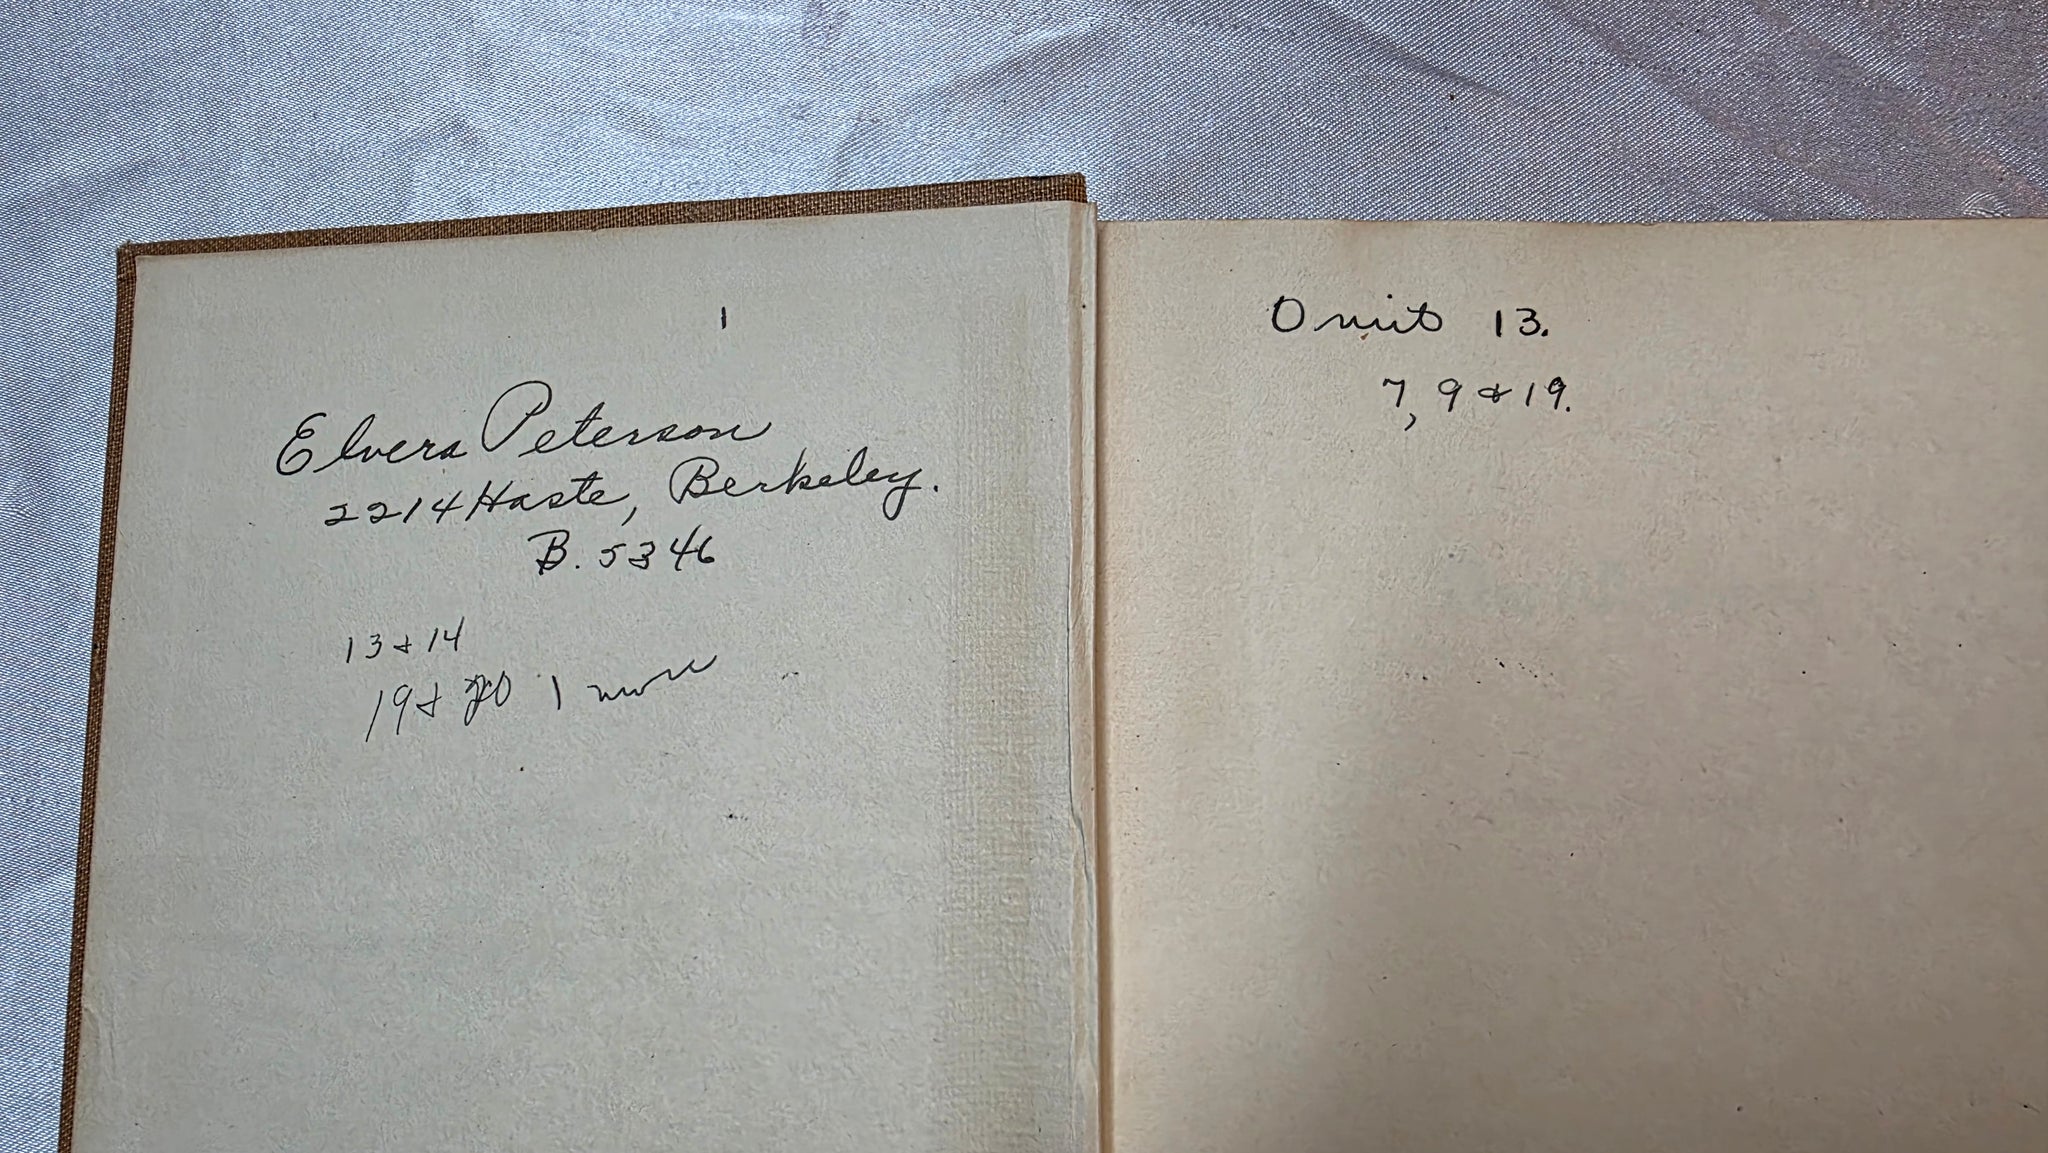 1
Elvera Peterson
2214 Haste, Berkeley.
B. 5346
13 & 14
19 & 20 1 more
Omit 13.
7, 9 & 19.